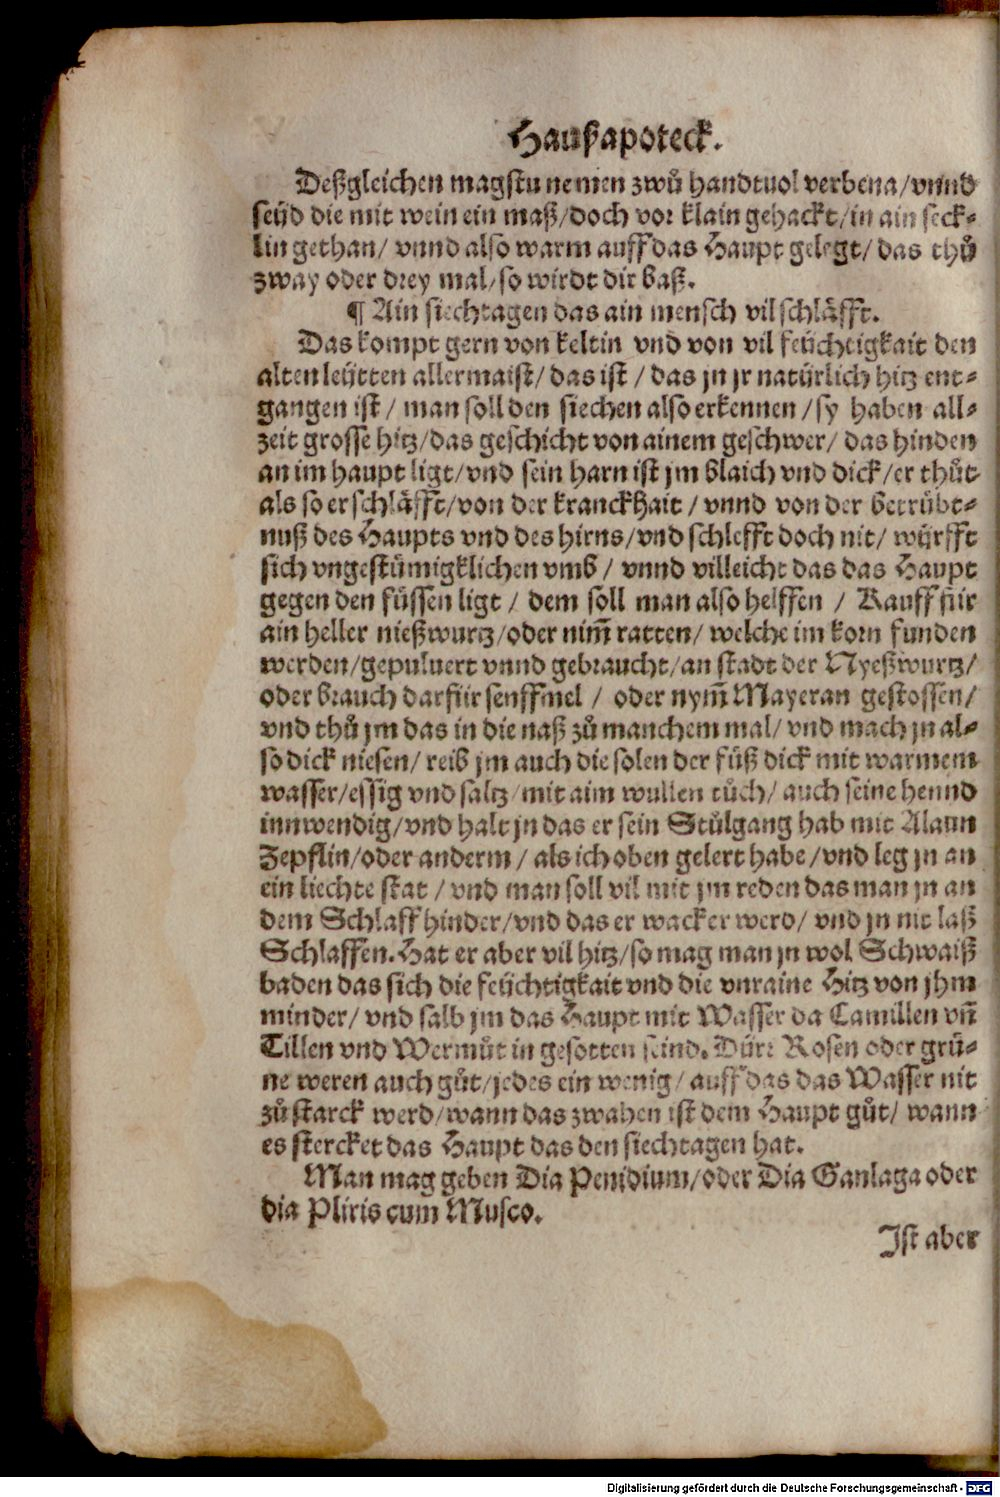 Haußapoteck.
Deßgleichen magstu nemen zwů handtuol verbena/vnnd
seüd die mit wein ein maß/doch vor klain gehackt/in ain seck-
lin gethan/ vnnd also warm auff das Haupt gelegt/ das thů
zway oder drey mal/so wirdt dir baß.
¶ Ain siechtagen das ain mensch vil schläfft.
Das kompt gern von keltin vnd von vil feüchtigkait den
alten leütten allermaist/ das ist / das jn jr natürlich hitz ent-
gangen ist / man soll den siechen also erkennen /sy haben all-
zeit grosse hitz/das geschicht von ainem geschwer/ das hinden
an im haupt ligt/vnd sein harn ist jm blaich vnd dick/er thůt
als so er schläfft/von der kranckhait / vnnd von der betrübt-
nuß des Haupts vnd des hirns/vnd schlefft doch nit/ würfft
sich vngestümigklichen vmb / vnnd villeicht das das Haupt
gegen den füssen ligt / dem soll man also helffen / Kauff für
ain heller nießwurtz/oder nim̃ ratten/ welche im korn funden
werden/gepuluert vnnd gebraucht/an stadt der Nyeßwurtz/
oder brauch darfür senffmel / oder nym̃ Mayeran gestossen/
vnd thů jm das in die naß zů manchem mal/ vnd mach jn al-
so dick niesen/ reib jm auch die solen der füß dick mit warmem
wasser/essig vnd saltz/mit aim wullen tůch/ auch seine hennd
innwendig/vnd halt jn das er sein Stůlgang hab mit Alaun
Zepflin/oder anderm / als ich oben gelert habe /vnd leg jn an
ein liechte stat / vnd man soll vil mit jm reden das man jn an
dem Schlaff hinder/vnd das er wacker werd/ vnd jn nit laß
Schlaffen. Hat er aber vil hitz/so mag man jn wol Schwaiß
baden das sich die feüchtigkait vnd die vnraine Hitz von jhm
minder/ vnd salb jm das Haupt mit Wasser da Camillen vñ
Tillen vnd Wermůt in gesotten seind. Dürr Rosen oder grü-
ne weren auch gůt/jedes ein wenig/ auff das das Wasser nit
zů starck werd/wann das zwahen ist dem Haupt gůt/ wann
es stercket das Haupt das den siechtagen hat.
Man mag geben Dia Penidium/oder Dia Ganlaga oder
dia Pliris cum Musco.
Ist aber
Digitalisierung gefördert durch die Deutsche Forschungsgemeinschaft - DFG